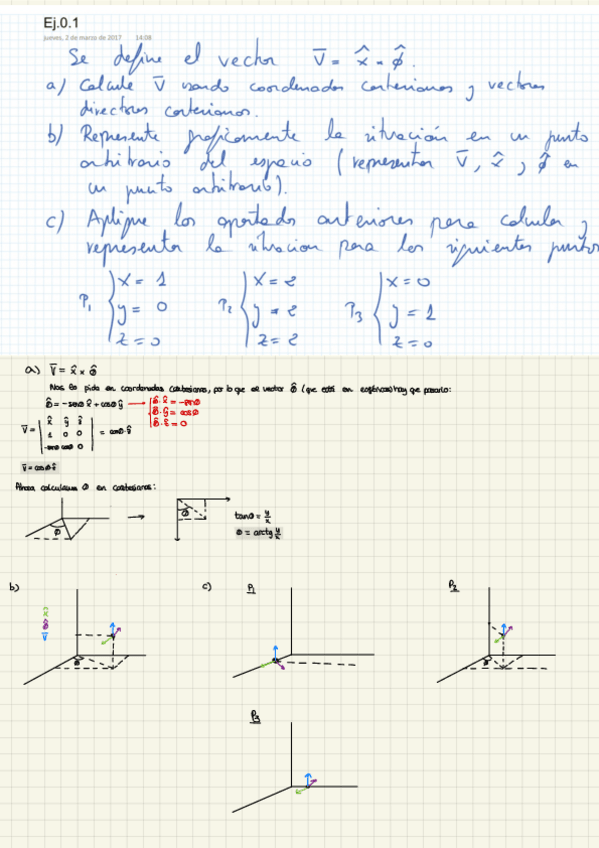 Ej.0.1
jueves, 2 de marzo de 2017 14:08
Se define el vector V̄ = x̂ × φ̂.
a) Calcule V̄ usando coordenadas cartesianas y vectores
directores cartesianos.
b) Represente graficamente la situación en un punto
arbitrario del espacio (representar V̄, x̂, φ̂ en
un punto arbitrario).
c) Aplique los apartados anteriores para calcular y
representar la situacion para los siguientes puntos
P₁ { x = 1 P₂ { x = 2 P₃ { x = 0
y = 0 y = 2 y = 1
z = 0 z = 2 z = 0
a) V̄ = x̂ × φ̂
Nos lo pide en coordenadas cartesianas, por lo que el vector φ̂ (que está en esféricas) hay que pasarlo:
φ̂ = -senφ x̂ + cosφ ŷ → φ̂·x̂ = -senφ
φ̂·ŷ = cosφ
φ̂·ẑ = 0
V̄ = | x̂ ŷ ẑ |
| 1 0 0 | = cosφ·ẑ
| -senφ cosφ 0 |
V̄ = cosφ ẑ
Ahora calculamos φ en cartesianas:
φ → φ
tanφ = y/x
φ = arctg y/x
b) c) P₁ P₂
x̂
φ̂
V̄
φ φ
P₃